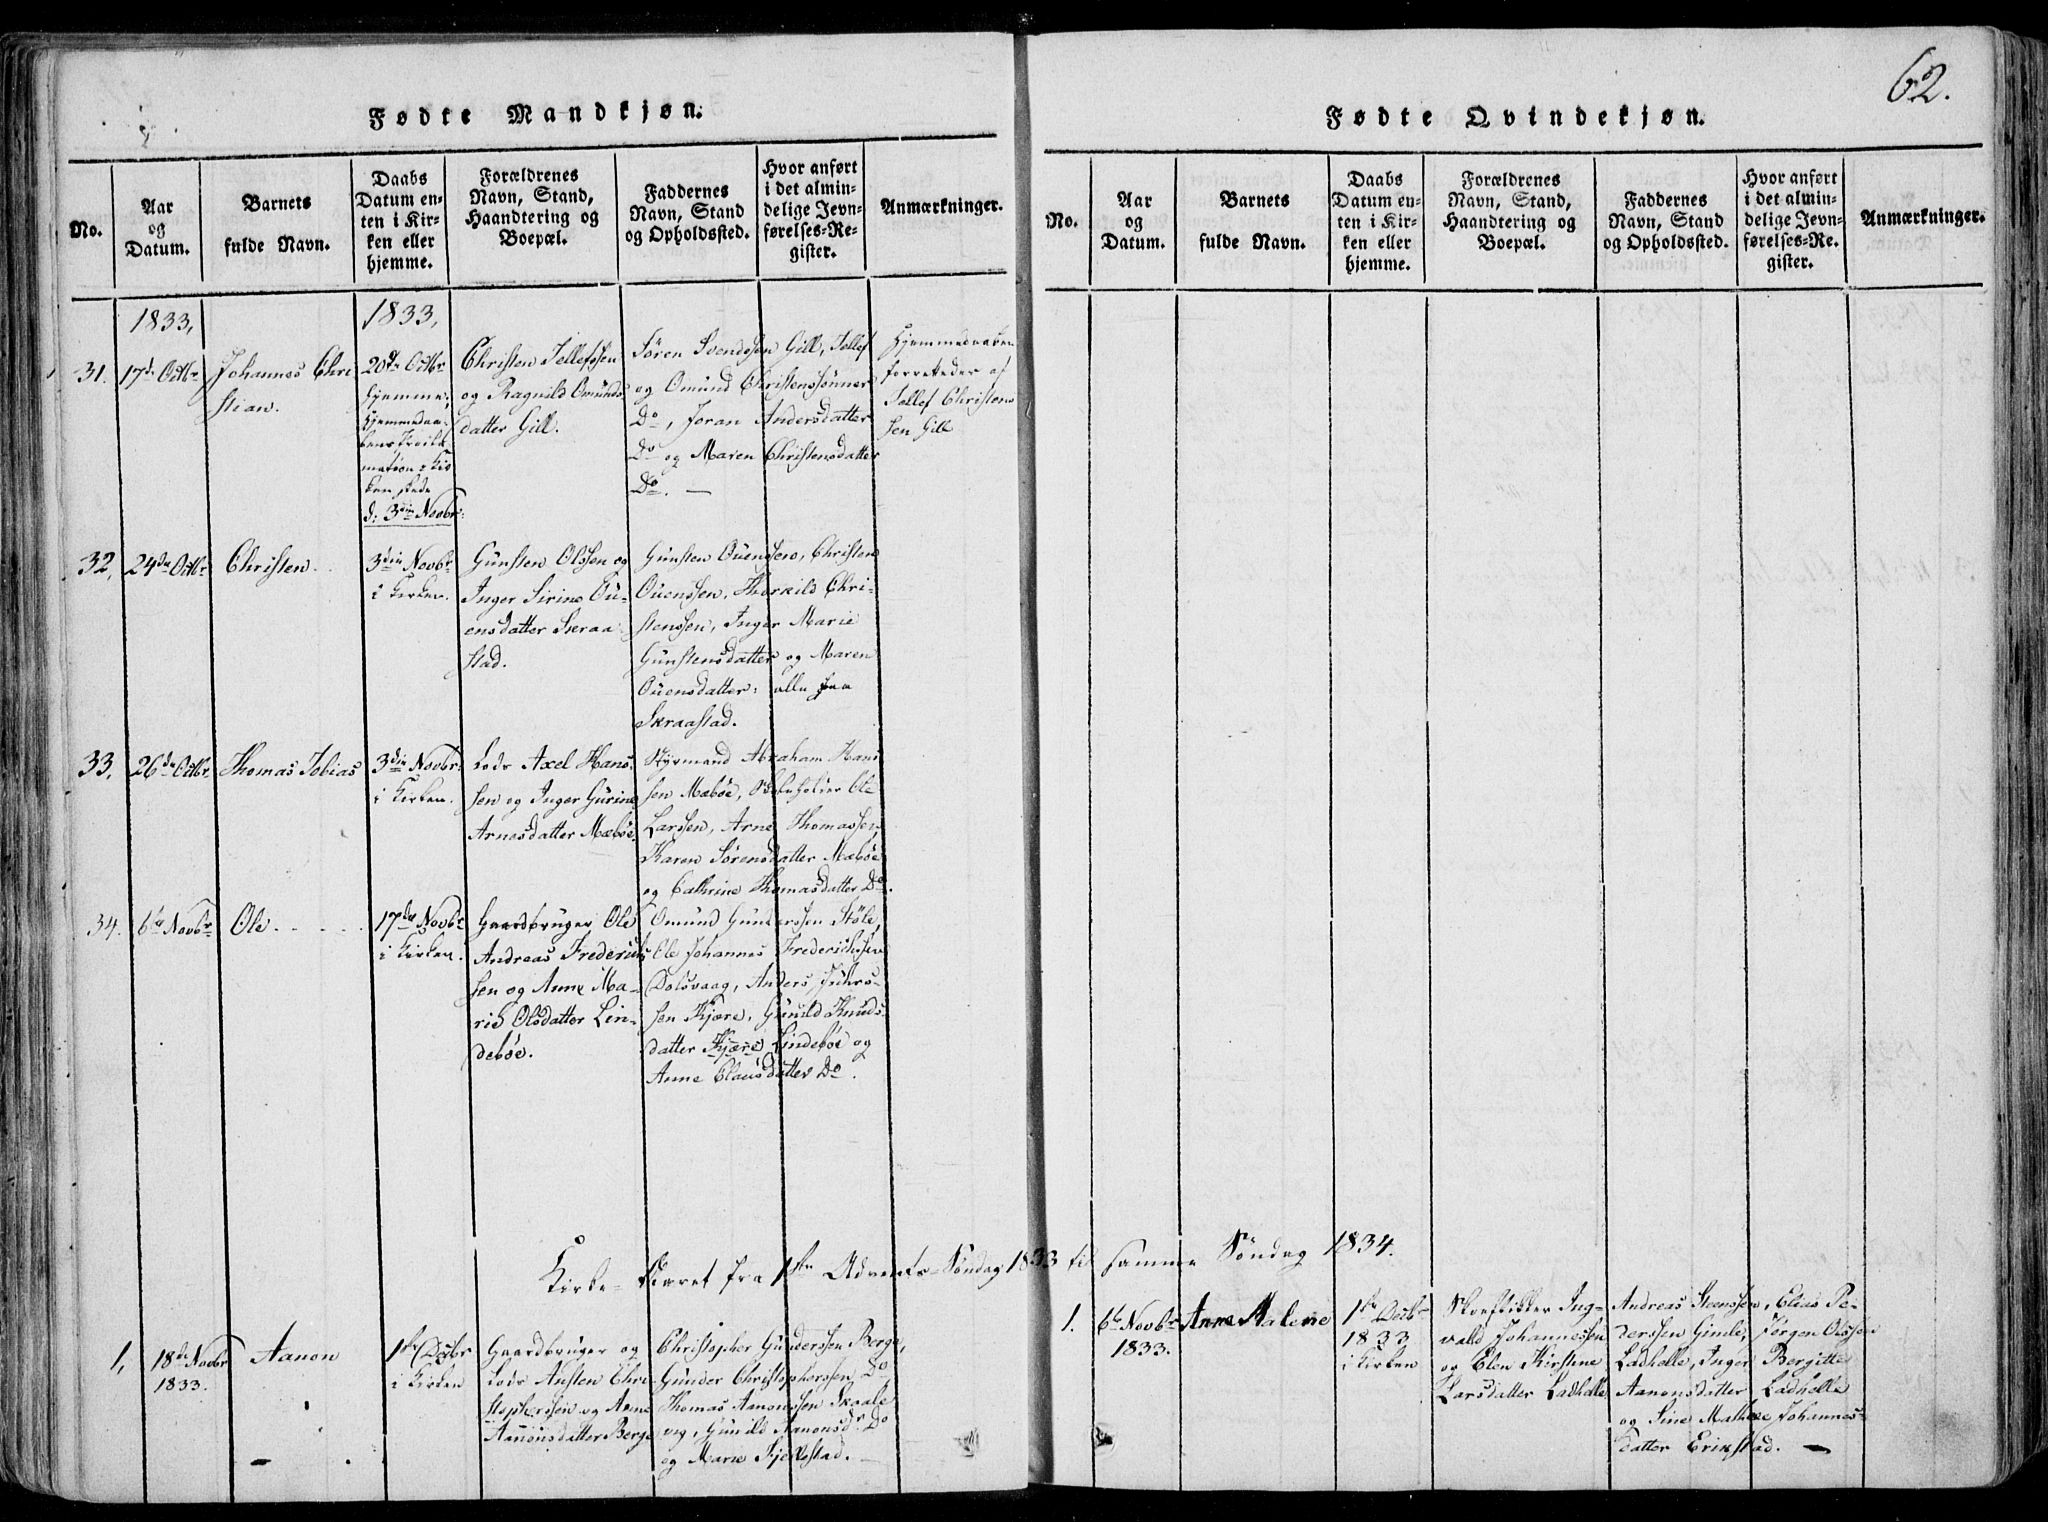 62.
Fødte Mandkjøn.
No.
Aar
og
Datum.
Barnets
fulde Navn.
Daabs
Datum en-
ten i Kir-
ken eller
hjemme.
Forældrenes
Navn, Stand,
Haandtering og
Boepæl.
Faddernes
Navn, Stand
og Opholdssted.
Hvor anført
i det almin-
delige Jevn-
førelses-Re-
gister.
Anmærkninger.
1833,
1833,
31.
17de Octbr
Johannes Chri
stian.
20de Octbr
hjemme;
Hjemmedaa-
bens
mation i Kir
ken skede
d: 3die Novbr:
Christen Tellefssen
og Ragnild Omunds
datter Gill.
Sören Svendssen Gill, Tellef
og Omund Christenssönner
Do, Joran Andersdatter
Do og Maren Christensdatter
Do. —
Hjemmedaaben
forrettedes af
Tellef Christens
sen Gill
32,
24de Octbr
Christen.
3die Novbr
i Kirken.
Gunsten Olssen og
Inger Sirine Ou-
ensdatter Skraa
stad.
Gunsten Ouenssen, Christen
Ouenssen, Thorkild Chri-
stenssen, Inger Marie
Gunstensdatter og Maren
Ouensdatter: alle fra
Skraastad.
33,
26de Octbr.
Thomas Tobias
3die Novbr:
i Kirken.
Lods Axel Hans-
sen og Inger Gurine
Arnesdatter Mæbøe.
Styrmand Abraham Hans
sen Mæbøe, Ole
Larssen, Arne Thomassen,
Karen Sörensdatter Mæbøe
og Cathrine Thomasdatter Do.
34.
6te Novbr
Ole
17de Novbr
i Kirken.
Gaardbruger Ole
Andreas Fredericks
sen og Anne Ma-
rie Olsdatter Lin-
debøe.
Omund Gunderssen Stöle,
Ole Johannes Frederichssen
Dalsvaag, Anders
sen Kjære, Gunild Knuds-
datter Kjære Lindebøe og
Anne Clausdatter Do.
Kirke-Aaret fra 1ste Advents-Søndag 1833 til samme Søndag 1834.
1,
18de Novbr
1833.
Aanon
1ste Decbr
i Kirken
Gaardbruger og
Lods Austen Chri-
stophersen og Anne
Aanonsdatter Berge
Christopher Gunderssen Berge,
Gunder Christopherssen Do
Thomas Aanonssen Skaale
vig, Gunild Aanonsdr Do
og Marie Kjerkstad.
Fødte Qvindekjøn.
No.
Aar
og
Datum.
Barnets
fulde Navn.
Daabs
Datum en-
ten i Kir-
ken eller
hjemme.
Forældrenes
Navn, Stand,
Haandtering og
Boepæl.
Faddernes
Navn, Stand
og Opholdssted.
Hvor anført
i det almin-
delige Jevn-
førelses-Re-
gister.
Anmærkninger.
1.
6te Novbr
1833.
Anne Malene
1ste Decbr
1833
i Kirken
Skoeflikker Ing-
vald Johannessen
og Elen Kirstine
Larsdatter Ladhelle
Andreas Steenssen, Elias Pe-
derssen Gimle, Jørgen Olssen
Ladhelle, Inger Bergitte
Aanonsdatter Ladhelle
og Sine Mathea Johannes-
datter Erikstad. —